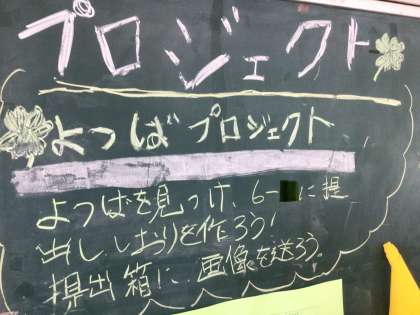 プロジェクト
よつばプロジェクト
よつばを見つけ、6-に提
出し、しおりを作ろう!
提出箱に、画像を送ろう。